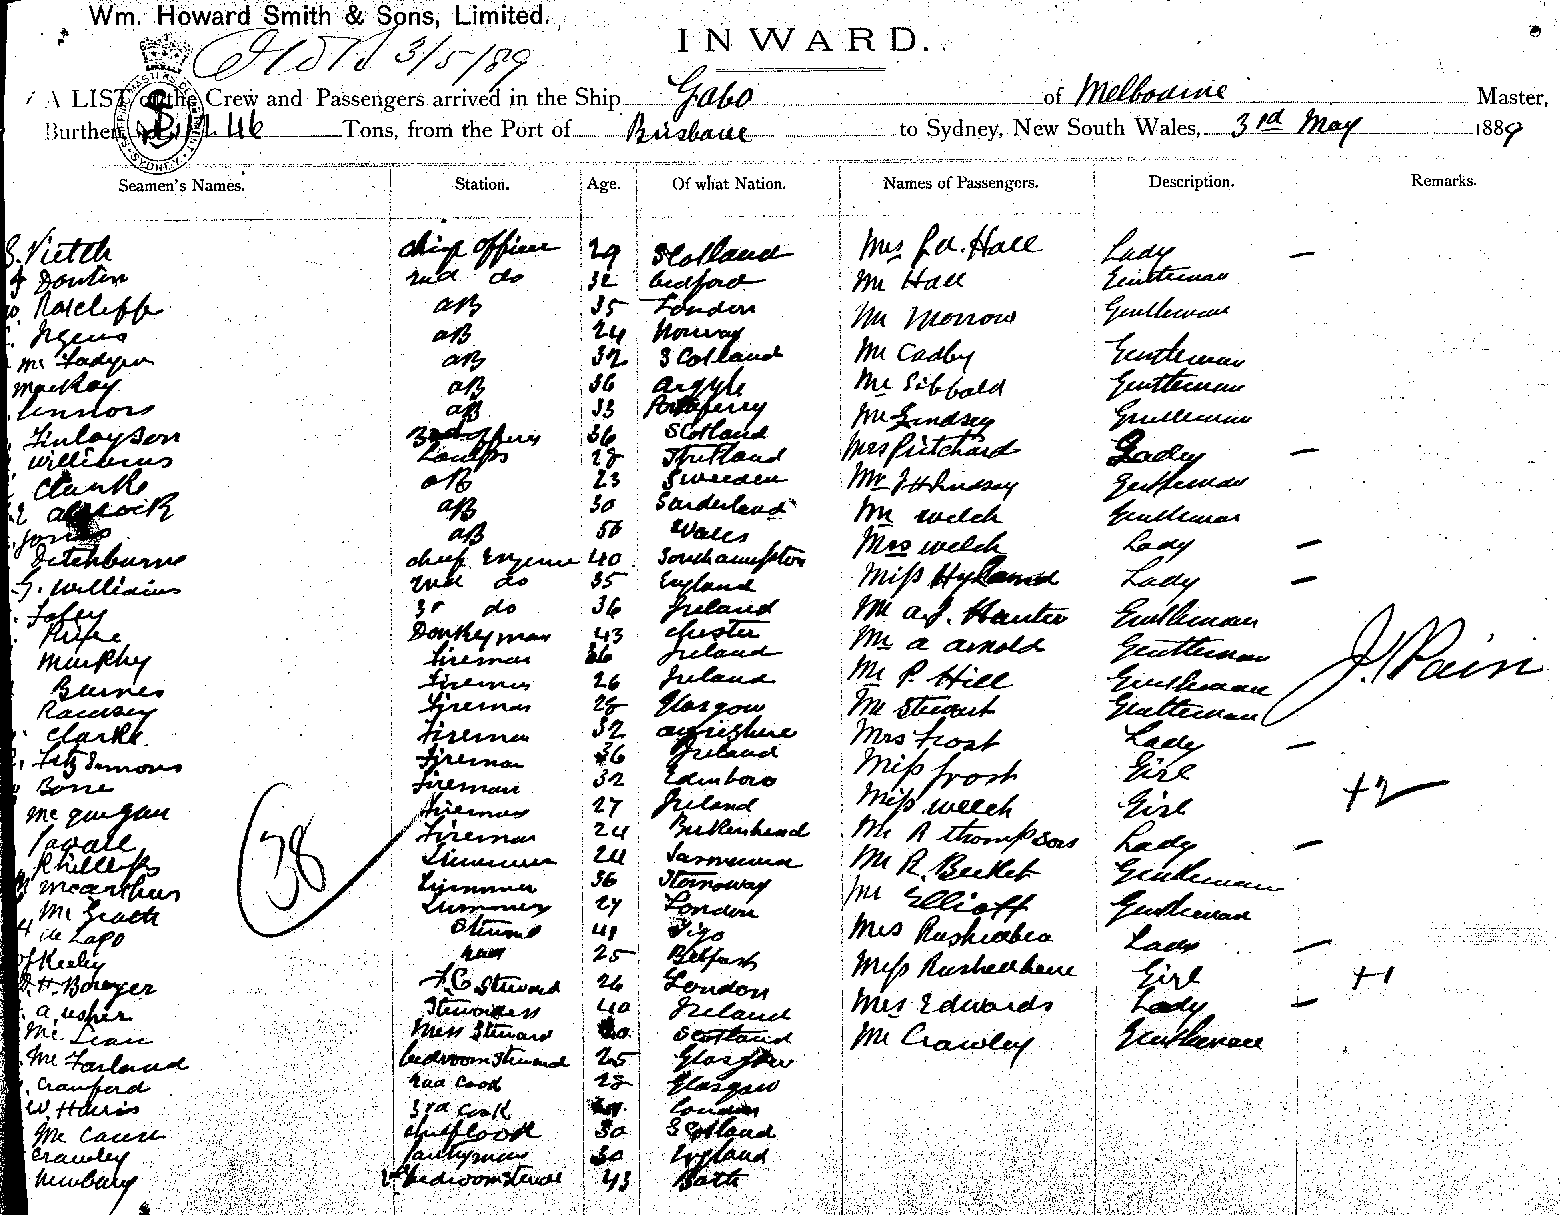 Wm. Howard Smith & Sons, Limited.
3/5/89
INWARD.
A LIST of the Crew and Passengers arrived in the Ship Gabo of Melbourne Master,
Burthen 46 Tons, from the Port of Brisbane to Sydney, New South Wales, 3rd May 1889
Seamen's Names. Station. Age. Of what Nation. Names of Passengers. Description. Remarks.
S. Vietch chief officer 29 Scotland Mrs Hall Lady —
Donton 2nd do 32 Bedford Mr Hall Gentleman
Ratcliffe AB 35 London Mr Morrow Gentleman
AB 24 Norway Mr Cadby Gentleman
McFadyen AB 32 Scotland Mr Sibbald Gentleman
MacKay AB 36 Argyle Mr Lindsey Gentleman
Connors AB 33 Portaferry Mrs Pritchard Lady —
Finlayson 36 Scotland Mr J H Lindsey Gentleman
Williams Lamps 28 Shetland Mr Welch Gentleman
Clarke AB 23 Sweeden Mrs Welch Lady —
AB 30 Sunderland Miss Hyland Lady —
Jones AB 50 Wales Mr A. J. Hunter Gentleman
Ditchburne chief Engineer 40 Southampton Mr A Arnold Gentleman
G. Williams 2nd do 35 England Mr P. Hill Gentleman
3r do 36 Ireland Mr Stewart Gentleman
Donkeyman 43 Chester Mrs Frost Lady —
Murphy Fireman 36 Ireland Miss Frost Girl
Barnes Fireman 26 Ireland Miss Welch Girl +2
Ramsey Fireman 28 Glasgow Mr R Thompson Lady —
Clarke Fireman 32 Ayrishire Mr R. Becket Gentleman
Fitzsimons Fireman 36 Ireland Mr Elliott Gentleman
Bone Fireman 32 Edinboro Mrs Lady —
McGuigan Fireman 27 Ireland Miss Girl +1
Fireman 24 Birkenhead Mrs Edwards Lady —
Phillips Trimmer 24 Tasmania Mr Crawley Gentleman
McArthur Trimmer 36 Stornoway
McGrath Trimmer 27 London
de Lago 41 Vigo
Keeley 25 Belfast
H. Bowyer F.C Steward 26 London
A. Usher Stewardess 40 Ireland
McLean Mess Steward Scotland
McFarland bedroom steward 25 Glasgow
Crawford 2nd cook 28 Glasgow
W Harris 3rd cook London
chief cook 30 Scotland
Crawley Pantryman 30 England
Newbury bedroom steward 43 Bath
38
J. Pain